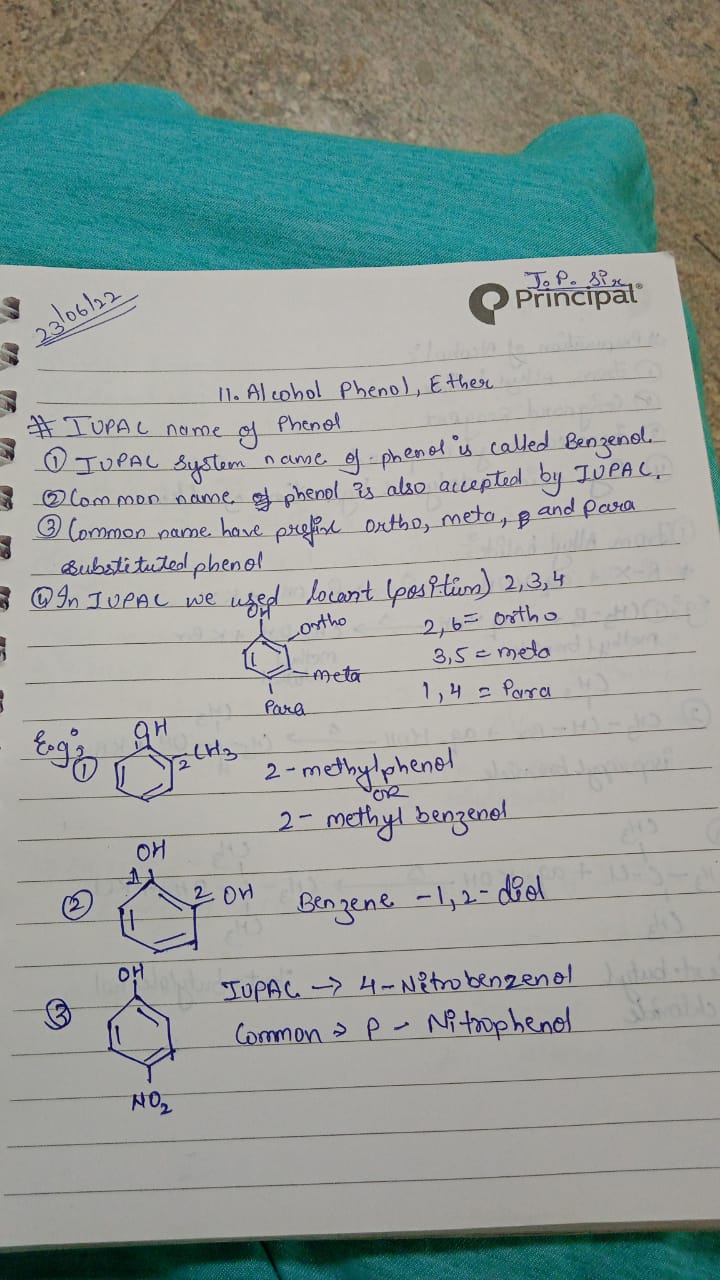 23/06/22
J.P. Six
Principal
11. Alcohol Phenol, Ether
# IUPAC name of Phenol
① IUPAC system name of phenol is called Benzenol.
② Common name of phenol is also accepted by IUPAC.
③ Common name have prefix ortho, meta, and para
substituted phenol
④ In IUPAC we used locant (position) 2,3,4
OH
ortho
2,6 = ortho
meta
3,5 = meta
Para
1,4 = Para
E.g:
① OH
2 CH3
2-methylphenol
OR
2- methyl benzenol
OH
② 1 2 OH Benzene -1,2-diol
OH
③ IUPAC → 4-Nitrobenzenol
Common → P - Nitrophenol
NO2